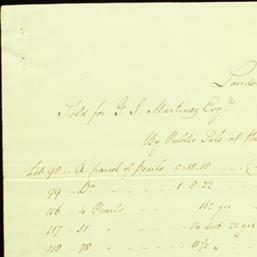 London
Sold for G. J. Martinez Esqre
By Public Sale at the
Lot 98 - A parcel of Pearls 0.18.18
99 - Do - - - 1.8.22
116 - 4 Pearls - - 162 grs
117 - 51 " - - 54 less 22 grs
118 - 78 - - - 11½ "